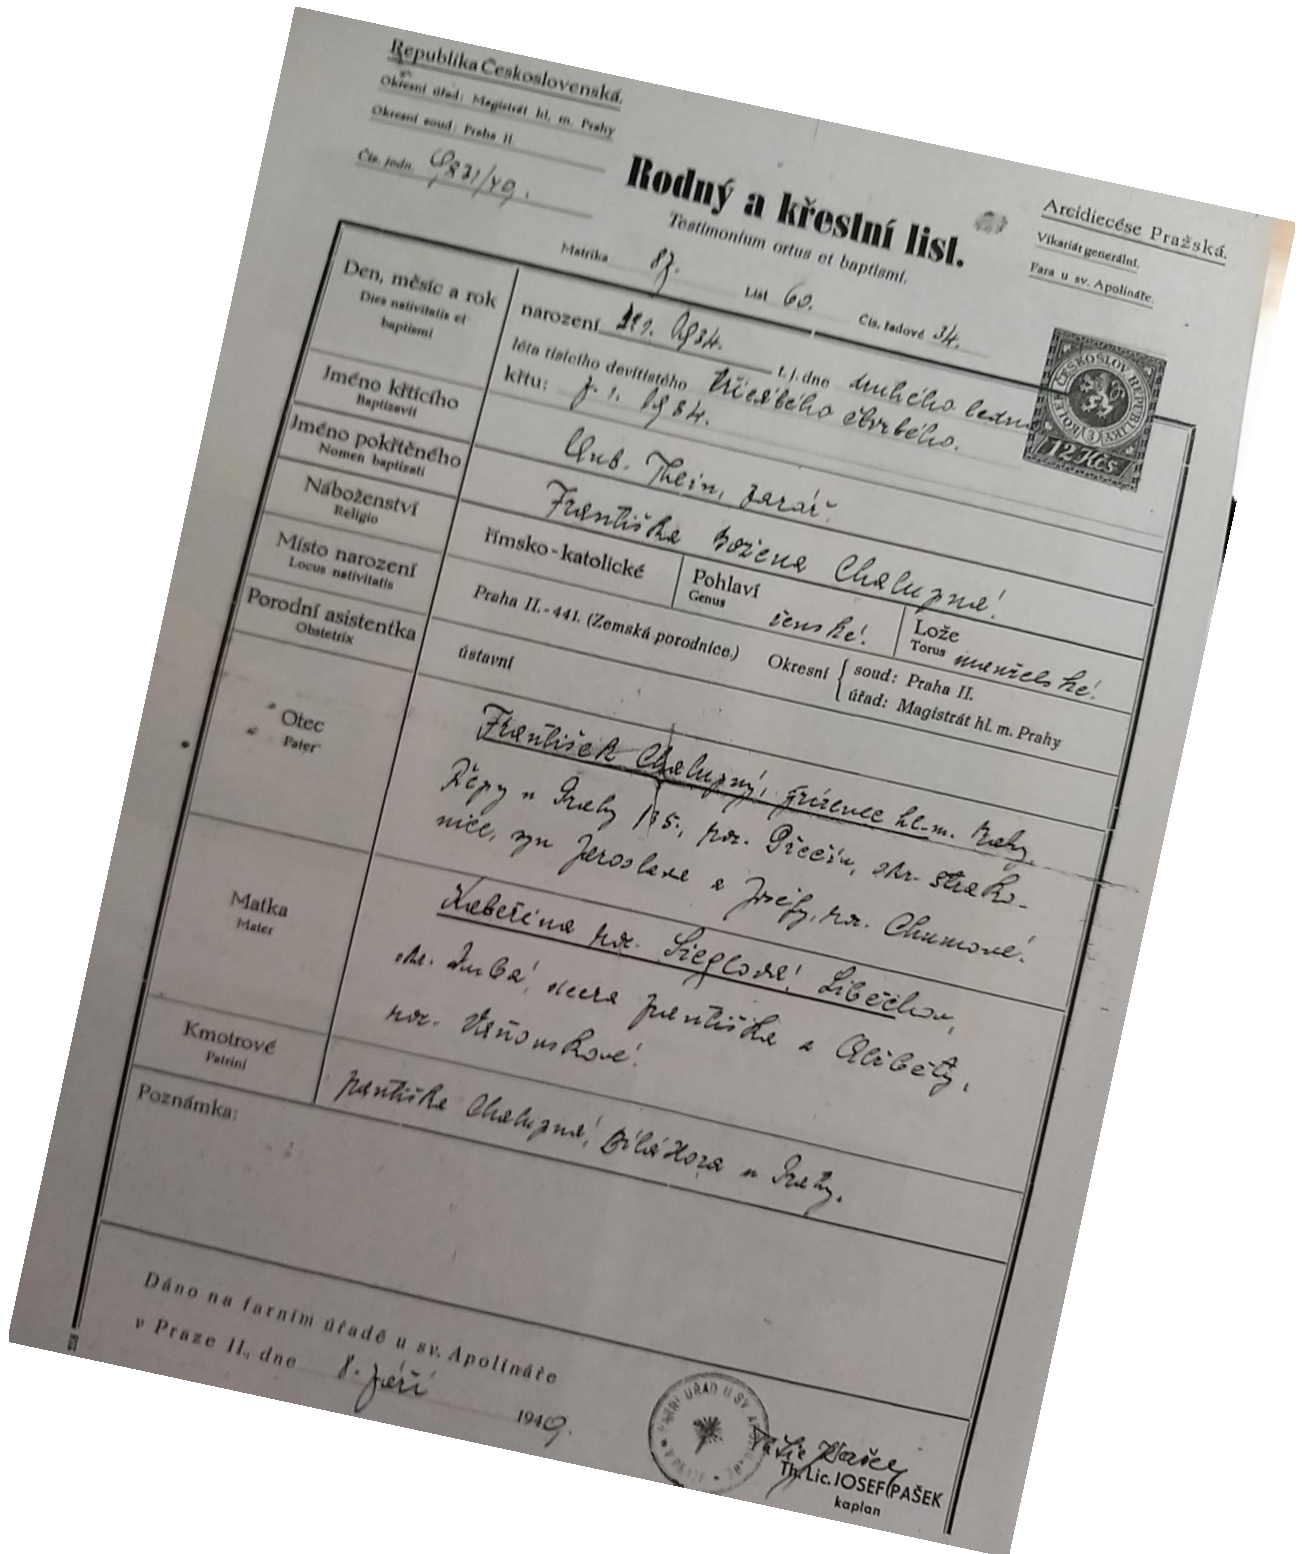 Republika Československá.
Okresní úřad: Magistrát hl. m. Prahy
Okresní soud: Praha II.
Čís. jedn. 9831/49.
Rodný a křestní list.
Testimonium ortus et baptismi.
Arcidiecése Pražská.
Vikariát generální.
Fara u sv. Apolináře.
Matrika 87. List 60. Čís. řadové 34.
Den, měsíc a rok
Dies nativitatis et
baptismi
narození 2.1. 1934. t. j. dne druhého ledna
léta tisícího devítistého třicátého čtvrtého.
křtu: 7. 1. 1934.
ČESKOSLOV. REPUBLIKY
KOLEK
12 Kčs
Jméno křtícího
Baptizavit
Ant. Thein, farář.
Jméno pokřtěného
Nomen baptizati
Františka Božena Chalupná
Náboženství
Religio
římsko-katolické
Pohlaví
Genus
ženské.
Lože
Torus
manželské.
Místo narození
Locus nativitatis
Praha II.-441. (Zemská porodnice.)
Okresní
soud: Praha II.
úřad: Magistrát hl. m. Prahy
Porodní asistentka
Obstetrix
ústavní
Otec
Pater
František Chalupný, zřízenec hl. m. Prahy,
Řepy u Prahy 135., nar. Přečín, okr. Strako-
nice, syn Jaroslava a Josefy, nar. Chumové.
Matka
Mater
Kateřina nar. Sieglová, Liběchov,
okr. Dubá, dcera Františka a Alžběty,
nar. Vaňourkové.
Kmotrové
Patrini
Františka Chalupná, Bílá Hora u Prahy.
Poznámka:
Dáno na farním úřadě u sv. Apolináře
v Praze II., dne 8. září 1949.
FARNÍ ÚŘAD U SV. APOLINÁŘE
V PRAZE
Th. Lic. JOSEF PAŠEK
kaplan